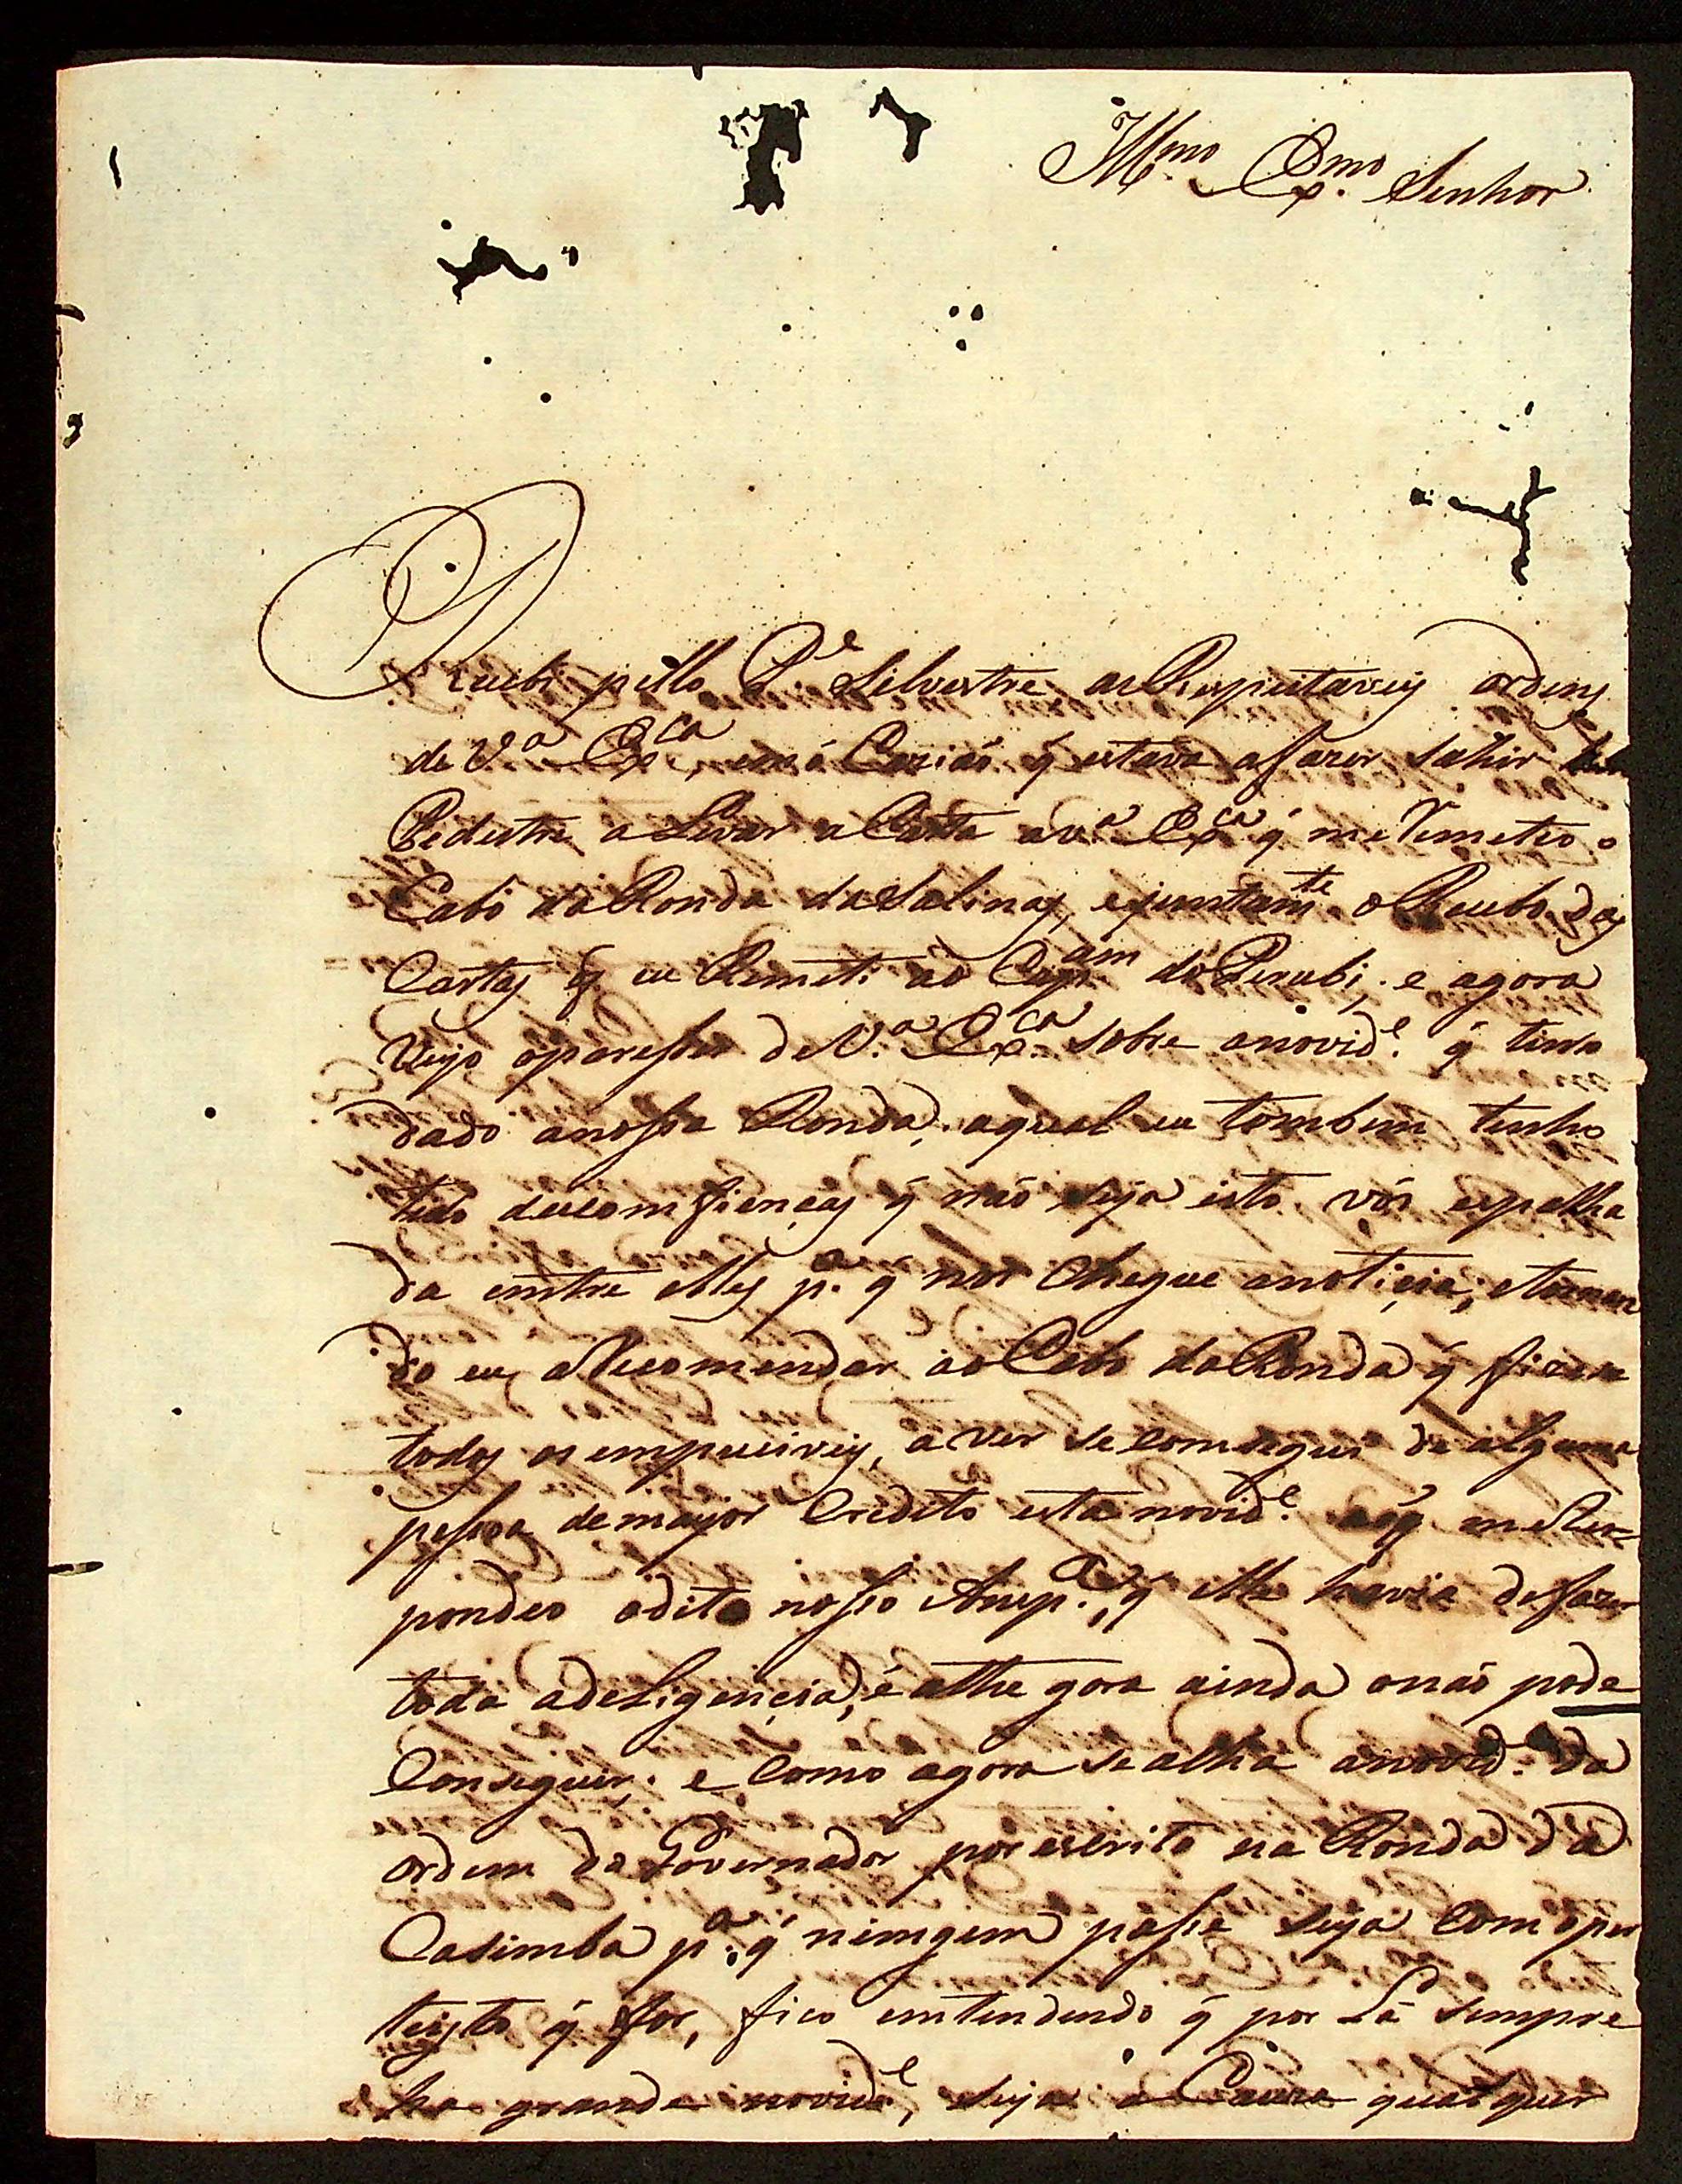 Ill.mo Ex.mo Senhor
Recebi pello P.e Silvestre as Respeitaveis ordens
de V.a Ex.ca, em ocaziaõ q̃ estava a fazer sahir hum
Pedestre a Levar a Carta a V.a Ex.ca q̃ me Remeteo o
Cabo da Ronda da Salinas, e juntam.te o Recibo das
Cartas q̃ eu Remeti ao Cap.am do Penubi; e agora
Vejo o paresser de V.a Ex.ca sobre a novid.e q̃ tinha
dado a nossa Ronda, a qual eu tombem tenho
tido descomfienças q̃ naõ seja isto vós espalha
da emtre elles p.a q̃ nos Chegue a noticia; e tornan
do eu a Recomendar ao Cabo da Ronda q̃ fizesse
todos os empuciveis, a ver se comsegui de alguma
pessoa de mayor Credito esta novid.e ao q̃ me Res=
pondeo o dito nosso Ansp.a, q̃ elle havia de fazer
toda a deligencia, e athe gora ainda o naõ pode
Conseguir; e Como agora se alha a novid.e da
ordem do Governador por escrito na Ronda da
Casimba p.a q̃ nimgem passe seja Com o per
teisto q̃ for, fico emtendendo q̃ por Lá sempre
ha grande novid.e, seja a Cauza qualquer